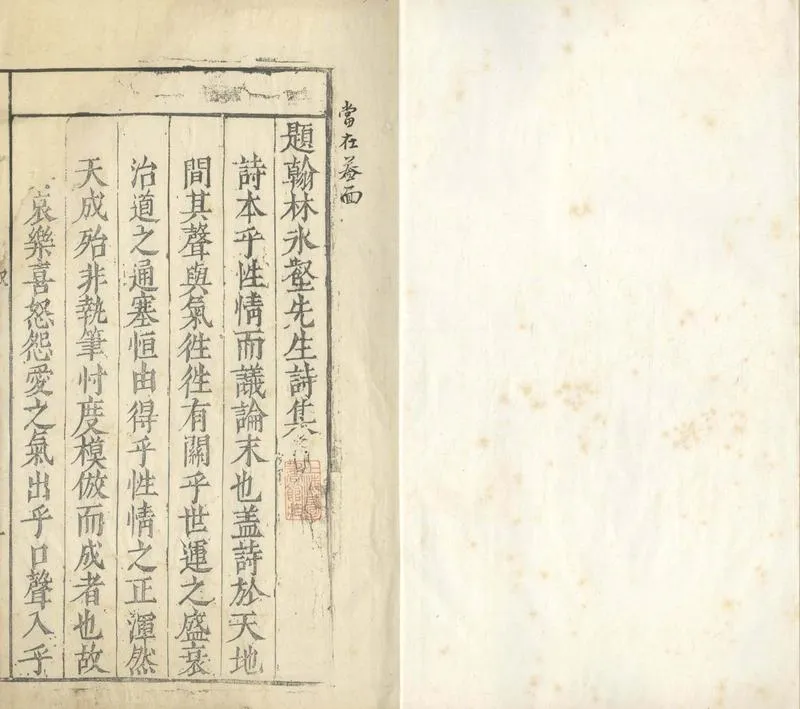 當在後面
題翰林氷壑先生詩集
詩本乎性情而議論末也盖詩於天地
間其聲與氣徃徃有關乎世運之盛衰
治道之通塞恒由得乎性情之正渾然
天成殆非執筆忖度模倣而成者也故
哀樂喜怒怨愛之氣出乎口聲入乎